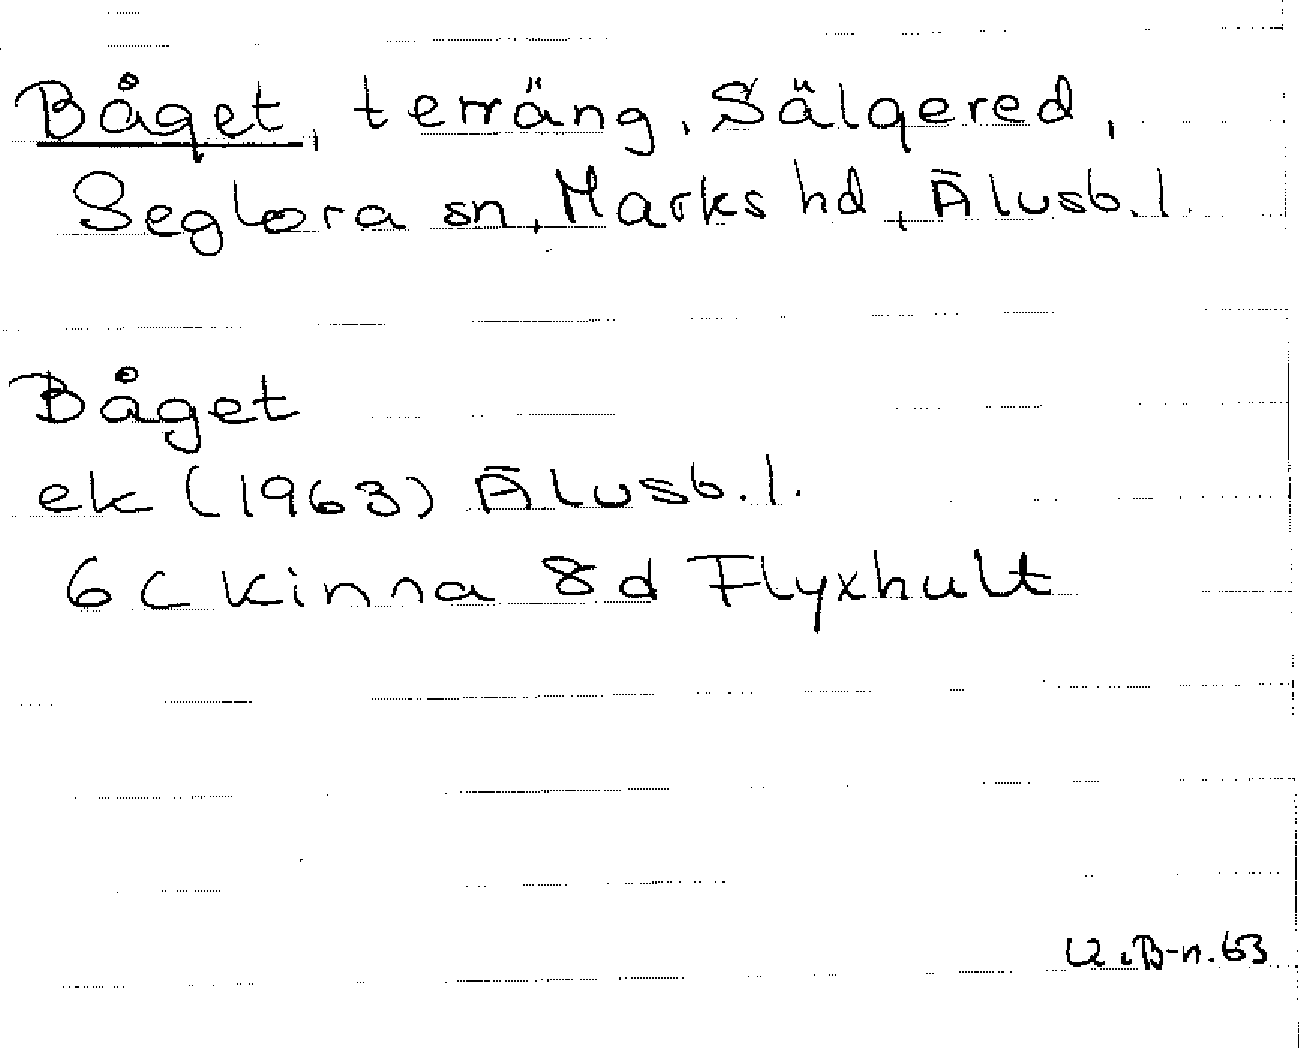 Båget, terräng, Sälgered,
Seglora sn, Marks hd, Älvsb. l.
Båget
ek (1963) Älvsb. l.
6 C Kinna 8 d Flyxhult
U. B-n. 63